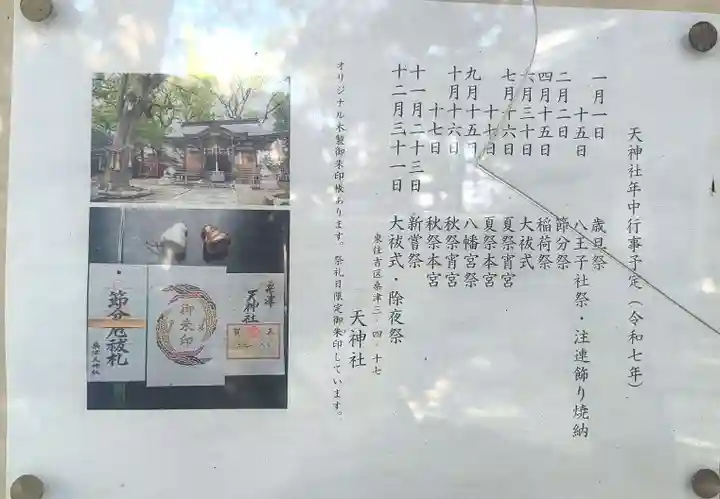 天神社年中行事予定(令和七年)
一月一日 歳旦祭
十五日 八王子社祭・注連飾り焼納
二月二日 節分祭
四月十五日 稲荷祭
六月三十日 大祓式
七月十六日 夏祭宵宮
十七日 夏祭本宮
九月十五日 八幡宮祭
十月十六日 秋祭宵宮
十七日 秋祭本宮
十一月二十三日 新嘗祭
十二月三十一日 大祓式・除夜祭
東住吉区桑津三・四・十七
天神社
オリジナル木製御朱印帳あります。祭礼日限定御朱印しています。
桑津
天神社
御朱印
節分厄祓札
桑津天神社